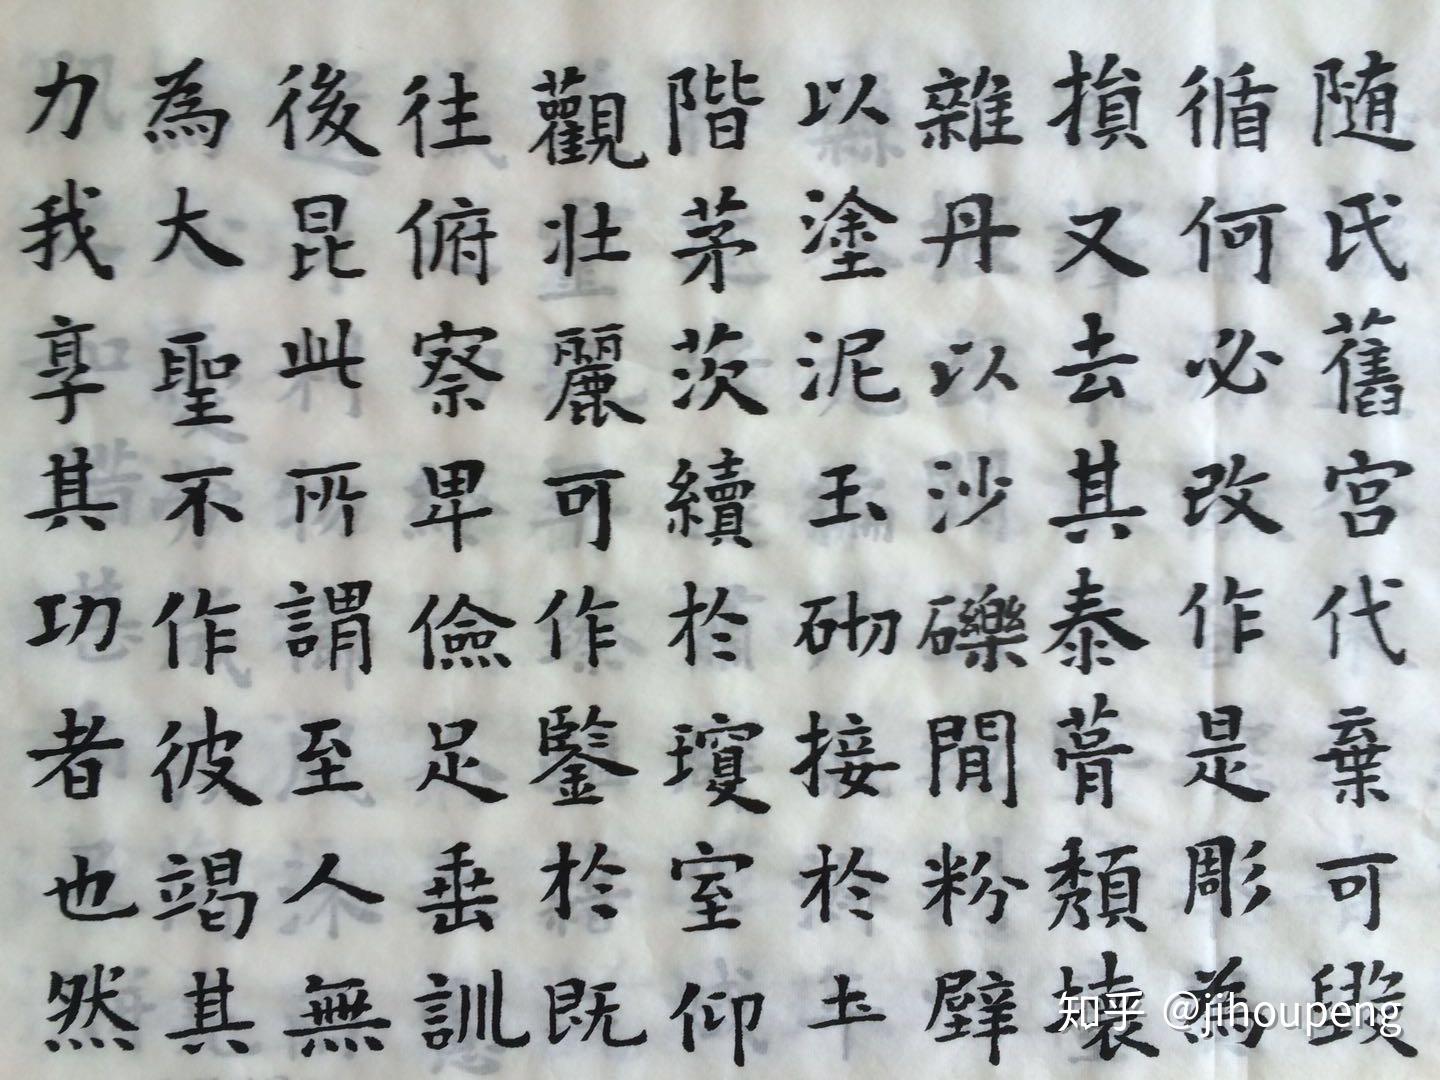 随氏舊宮代棄可毁
循何必改作是彫為
損又去其泰葺頹壞
雜丹以沙礫間粉壁
以塗泥玉砌接於土
階茅茨續於瓊室仰
觀壯麗可作鑒於既
往俯察卑儉足垂訓
後昆此所謂至人無
為大聖不作彼竭其
力我享其功者也然
知乎 @jihoupeng